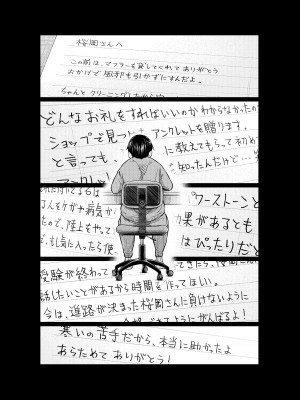 桜岡さんへ
この前は、マフラーを貸してくれてありがとう
おかげで風邪も引かずにすんだよ。
ちゃんとクリーニングしたから
どんなお礼をすればいいのかわからなかったの
ショップで見つけたアンクレットを贈ります。
と言っても、 に教えてもらって初め
アンクレッ 知ったんだけど…
ワーストーンと
人をケガや病気か 果があるとも
ので、陸上をやって はぴったりだと
で、もし気に入ったら使
受験が終わって てきたら、桜岡さん
話したいことがあるから時間を作ってほしい。
今は、進路が決まった桜岡さんに負けないように
がんばるよ!
寒いの苦手だから、本当に助かったよ
あらためてありがとう!